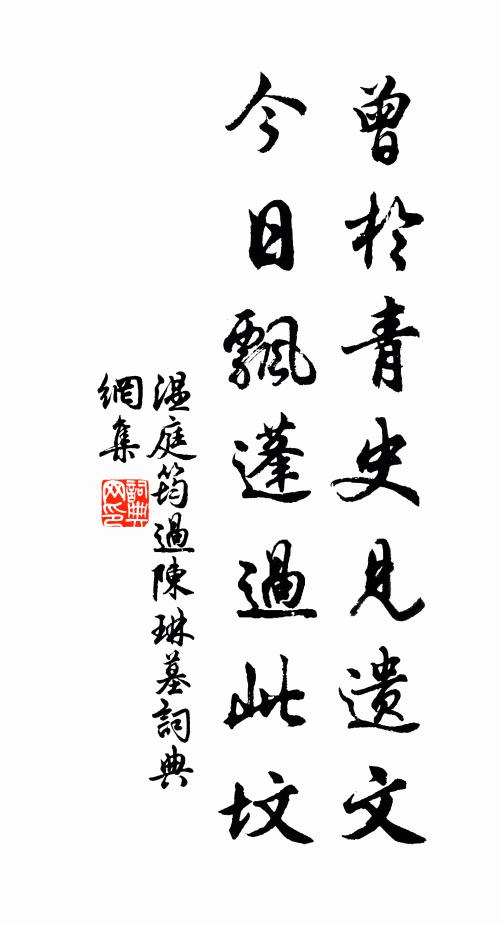 曾於青史見遺文
今日飄蓬過此坟
温庭筠過陳琳墓詞典
網集
詞典網印